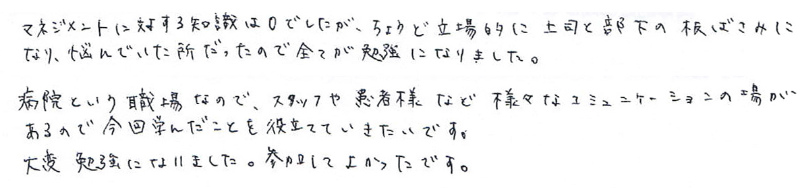 マネジメントに対する知識は0でしたが、ちょうど立場的に上司と部下の板ばさみに
なり、悩んでいた所だったので全てが勉強になりました。
病院という職場なので、スタッフや患者様など様々なコミュニケーションの場が
あるので今回学んだことを役立てていきたいです。
大変勉強になりました。参加してよかったです。